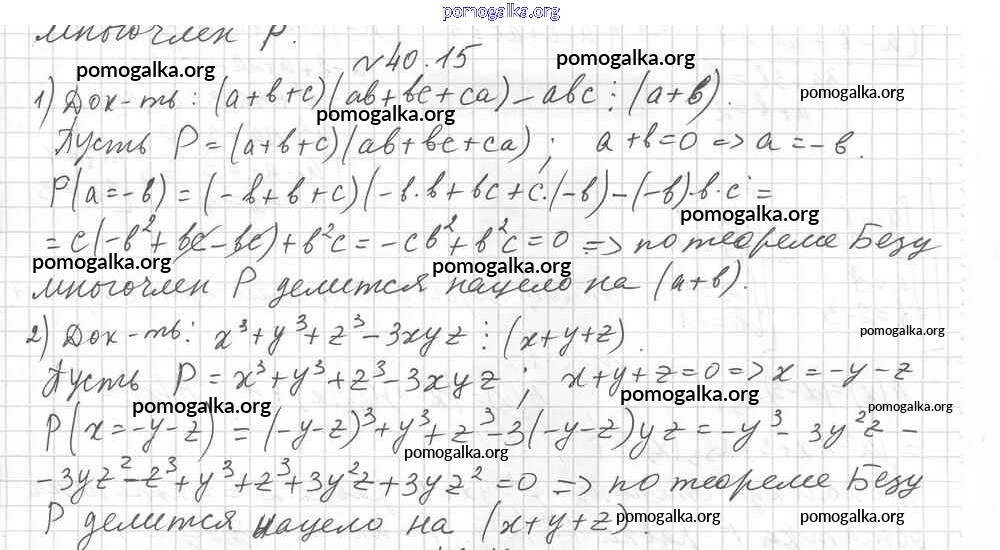 pomogalka.org
многочлен P.
№40.15
pomogalka.org pomogalka.org
1) Док-ть: (a+b+c)(ab+bc+ca)-abc⋮(a+b). pomogalka.org
pomogalka.org
Пусть P=(a+b+c)(ab+bc+ca); a+b=0 => a=-b.
P(a=-b)=(-b+b+c)(-b·b+bc+c·(-b)-(-b)·b·c=
pomogalka.org
=c(-b²+bc-bc)+b²c=-cb²+b²c=0 => по теореме Безу
pomogalka.org pomogalka.org
многочлен P делится нацело на (a+b).
2) Док-ть: x³+y³+z³-3xyz⋮(x+y+z). pomogalka.org
Пусть P=x³+y³+z³-3xyz; x+y+z=0 => x=-y-z
pomogalka.org pomogalka.org pomogalka.org
P(x=-y-z)=(-y-z)³+y³+z³-3(-y-z)yz=-y³-3y²z-
pomogalka.org
-3yz²-z³+y³+z³+3y²z+3yz²=0 => по теореме Безу
P делится нацело на (x+y+z). pomogalka.org pomogalka.org